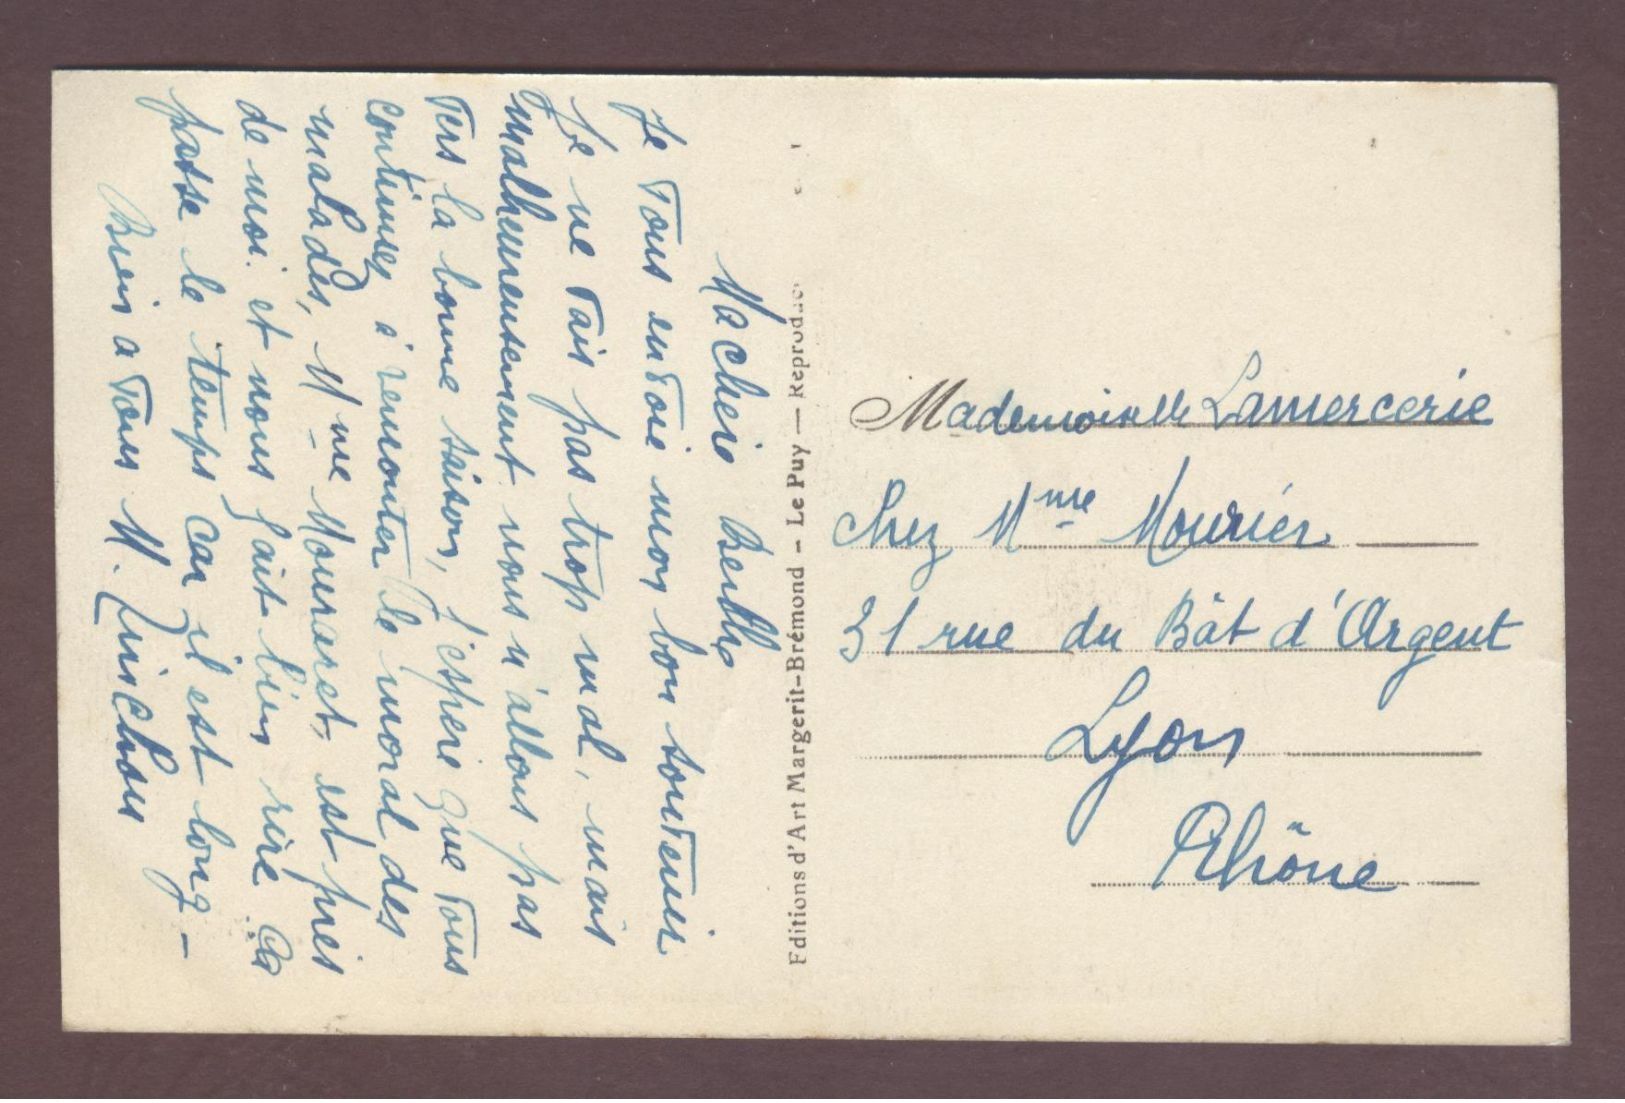 Ma chère Berthe
Je vous envoie mon bon souvenir
Je ne vais pas trop mal, mais
malheureusement nous n'allons pas
vers la bonne saison, j'espère que vous
continuez à remonter le moral des
malades, Mme Mounaret, est près
de moi. et nous fait bien rire ça
passe le temps car il est long –
Bien a vous M.
Editions d'Art Margerit-Brémond – Le Puy — Reproduc
Mademoiselle Lamercerie
Chez Mme Mourier
31 rue du Bât d'Argent
Lyon
Rhône